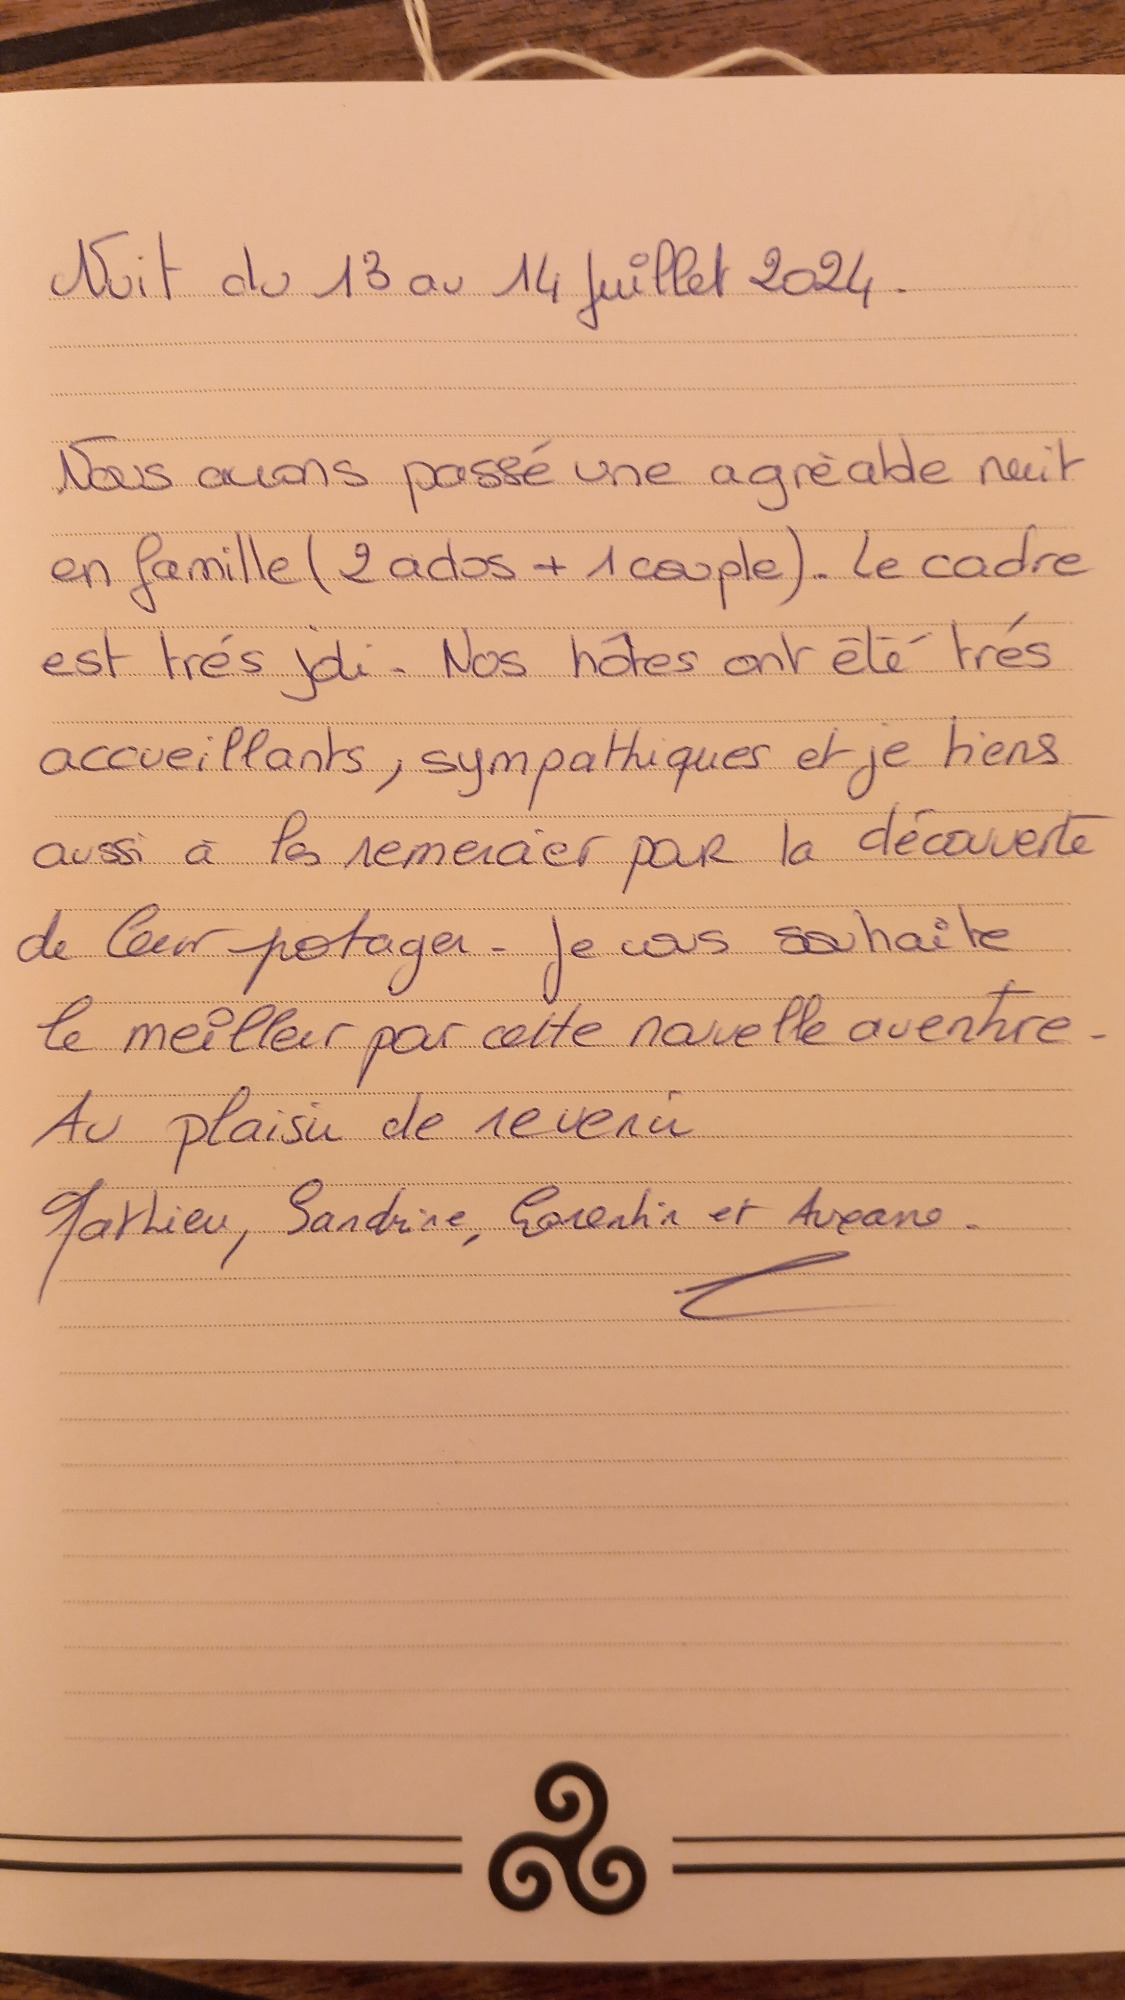 Nuit du 13 au 14 Juillet 2024.
Nous avons passé une agréable nuit
en famille (2 ados + 1 couple). Le cadre
est trés joli. Nos hôtes ont été trés
accueillants, sympathiques et je tiens
aussi à les remercier pour la découverte
de leur potager. Je vous souhaite
le meilleur pour cette nouvelle aventure.
Au plaisir de revenir
Mathieu, Sandrine, Corentin et Auxane.